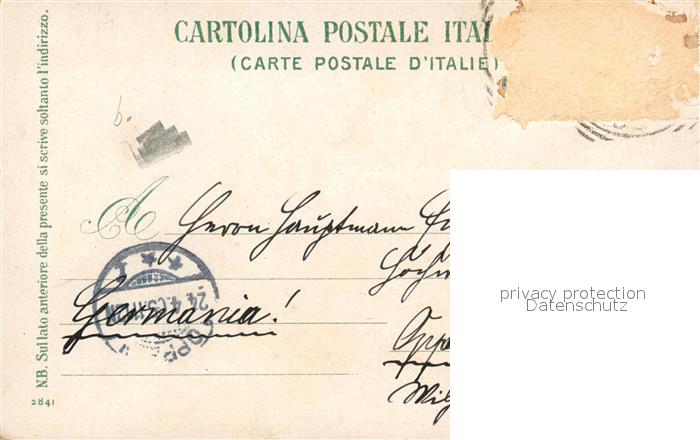 CARTOLINA POSTALE ITAL
(CARTE POSTALE D'ITALIE)
N.B. Sul lato anteriore della presente si scrive soltanto l'indirizzo.
b.
A Herrn Hauptmann
Germania!
privacy protection
Datenschutz
2841